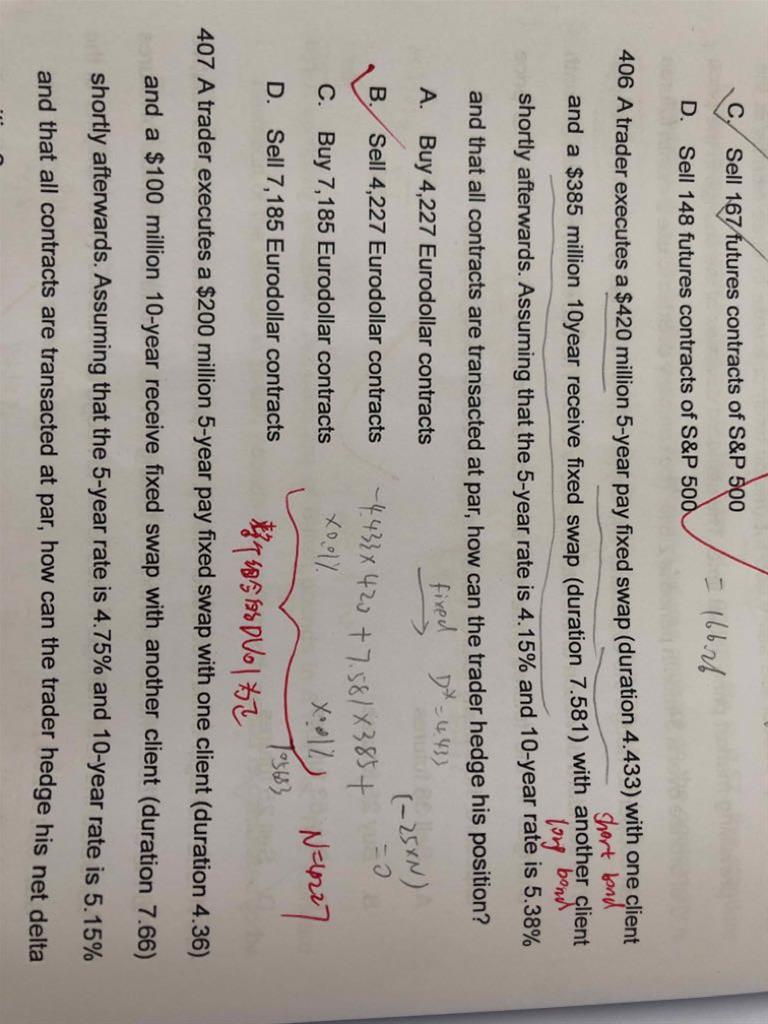 C. Sell 167 futures contracts of S&P 500
D. Sell 148 futures contracts of S&P 500
= 166.
406 A trader executes a $420 million 5-year pay fixed swap (duration 4.433) with one client
short bond
and a $385 million 10year receive fixed swap (duration 7.581) with another client
long bond
shortly afterwards. Assuming that the 5-year rate is 4.15% and 10-year rate is 5.38%
and that all contracts are transacted at par, how can the trader hedge his position?
A. Buy 4,227 Eurodollar contracts
fixed D* = 4.433
(-25×N)
B. Sell 4,227 Eurodollar contracts
-4.433×420 + 7.581×385 +
= 0
C. Buy 7,185 Eurodollar contracts
×0.01% ×0.01%
N=4227
D. Sell 7,185 Eurodollar contracts
105683
整个组合的DV01为正
407 A trader executes a $200 million 5-year pay fixed swap with one client (duration 4.36)
and a $100 million 10-year receive fixed swap with another client (duration 7.66)
shortly afterwards. Assuming that the 5-year rate is 4.75% and 10-year rate is 5.15%
and that all contracts are transacted at par, how can the trader hedge his net delta